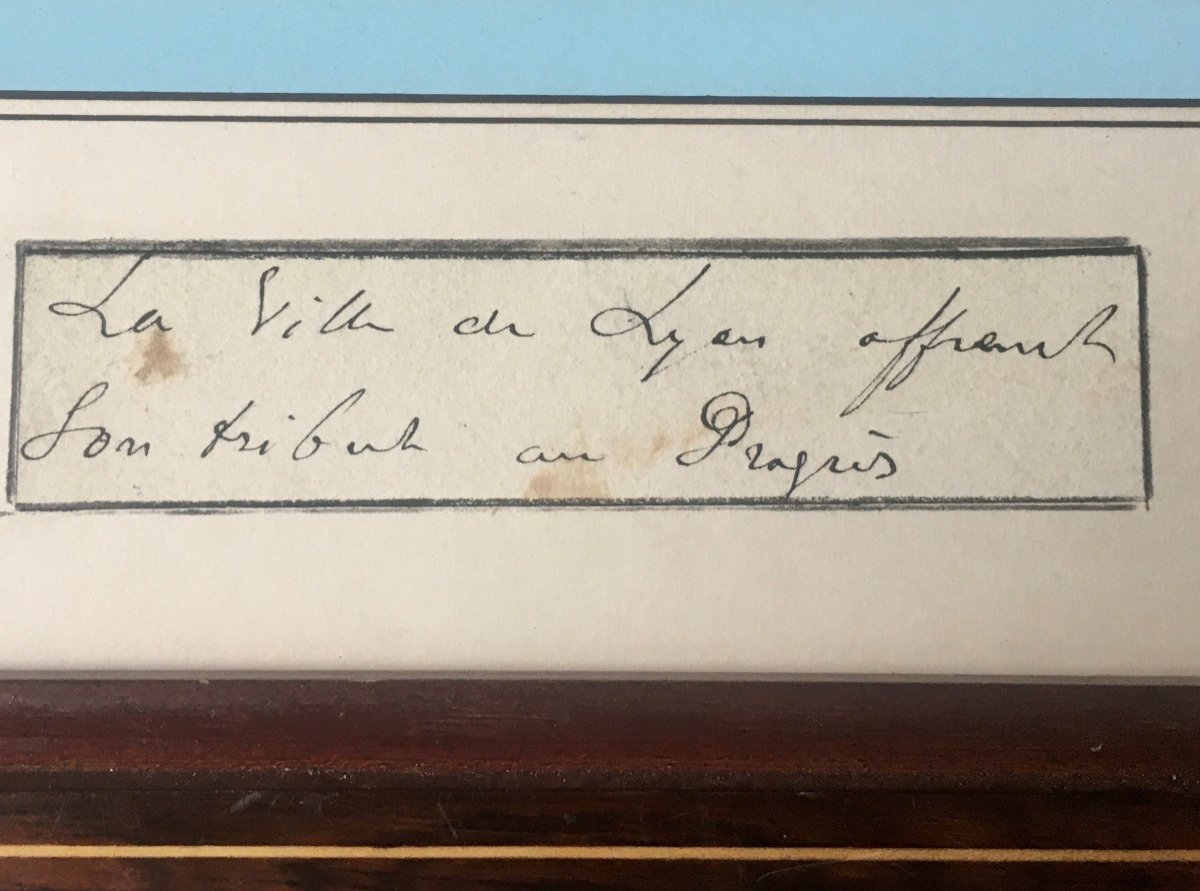 La Ville de Lyon offrant
Son tribut au Progrès